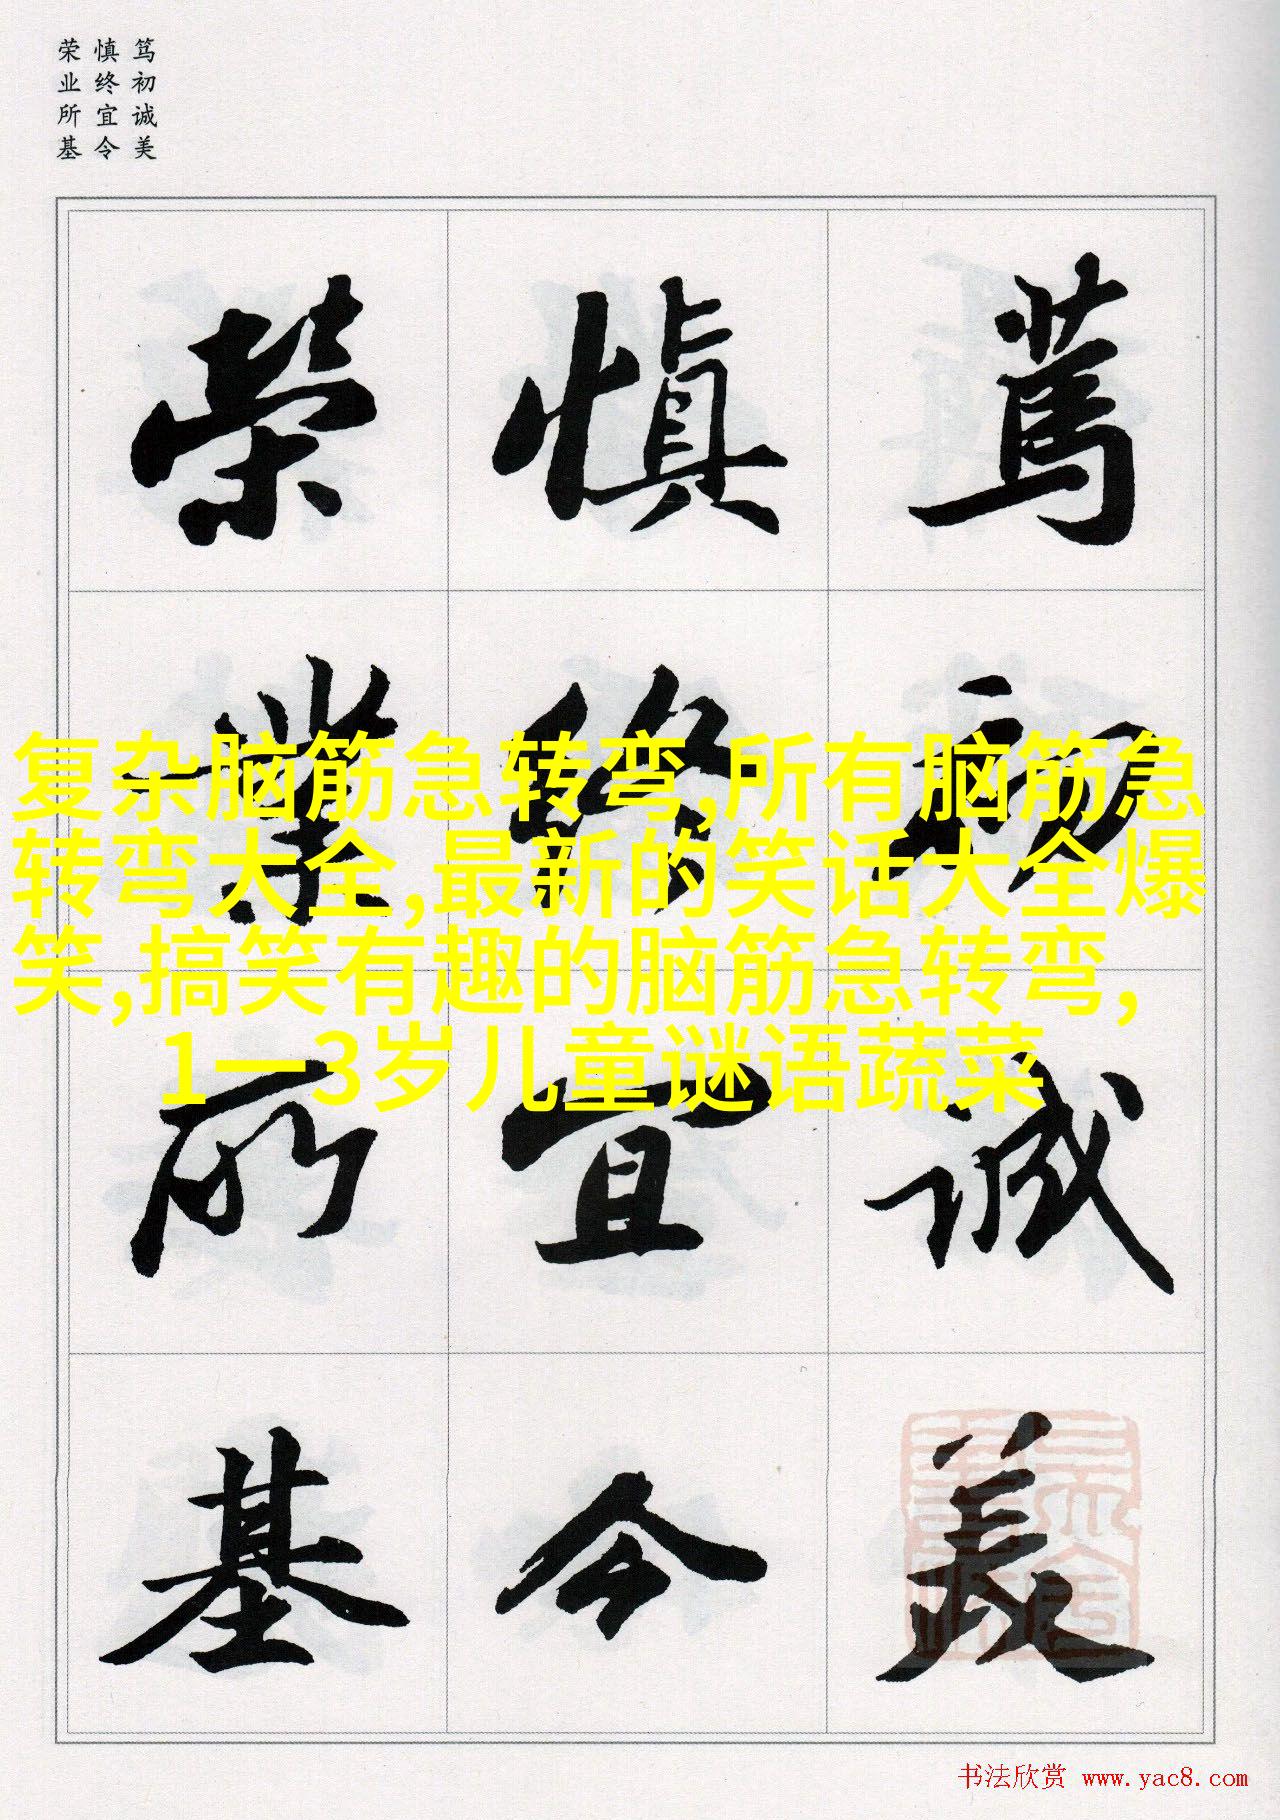 笃初诚美
慎终宜令
荣业所基
笃初诚美
慎終宜令
榮業所基
复杂脑筋急转弯,所有脑筋急
转弯大全,最新的笑话大全爆
笑,搞笑有趣的脑筋急转弯,
1一3岁儿童谜语蔬菜
书法欣赏 www.yac8.com